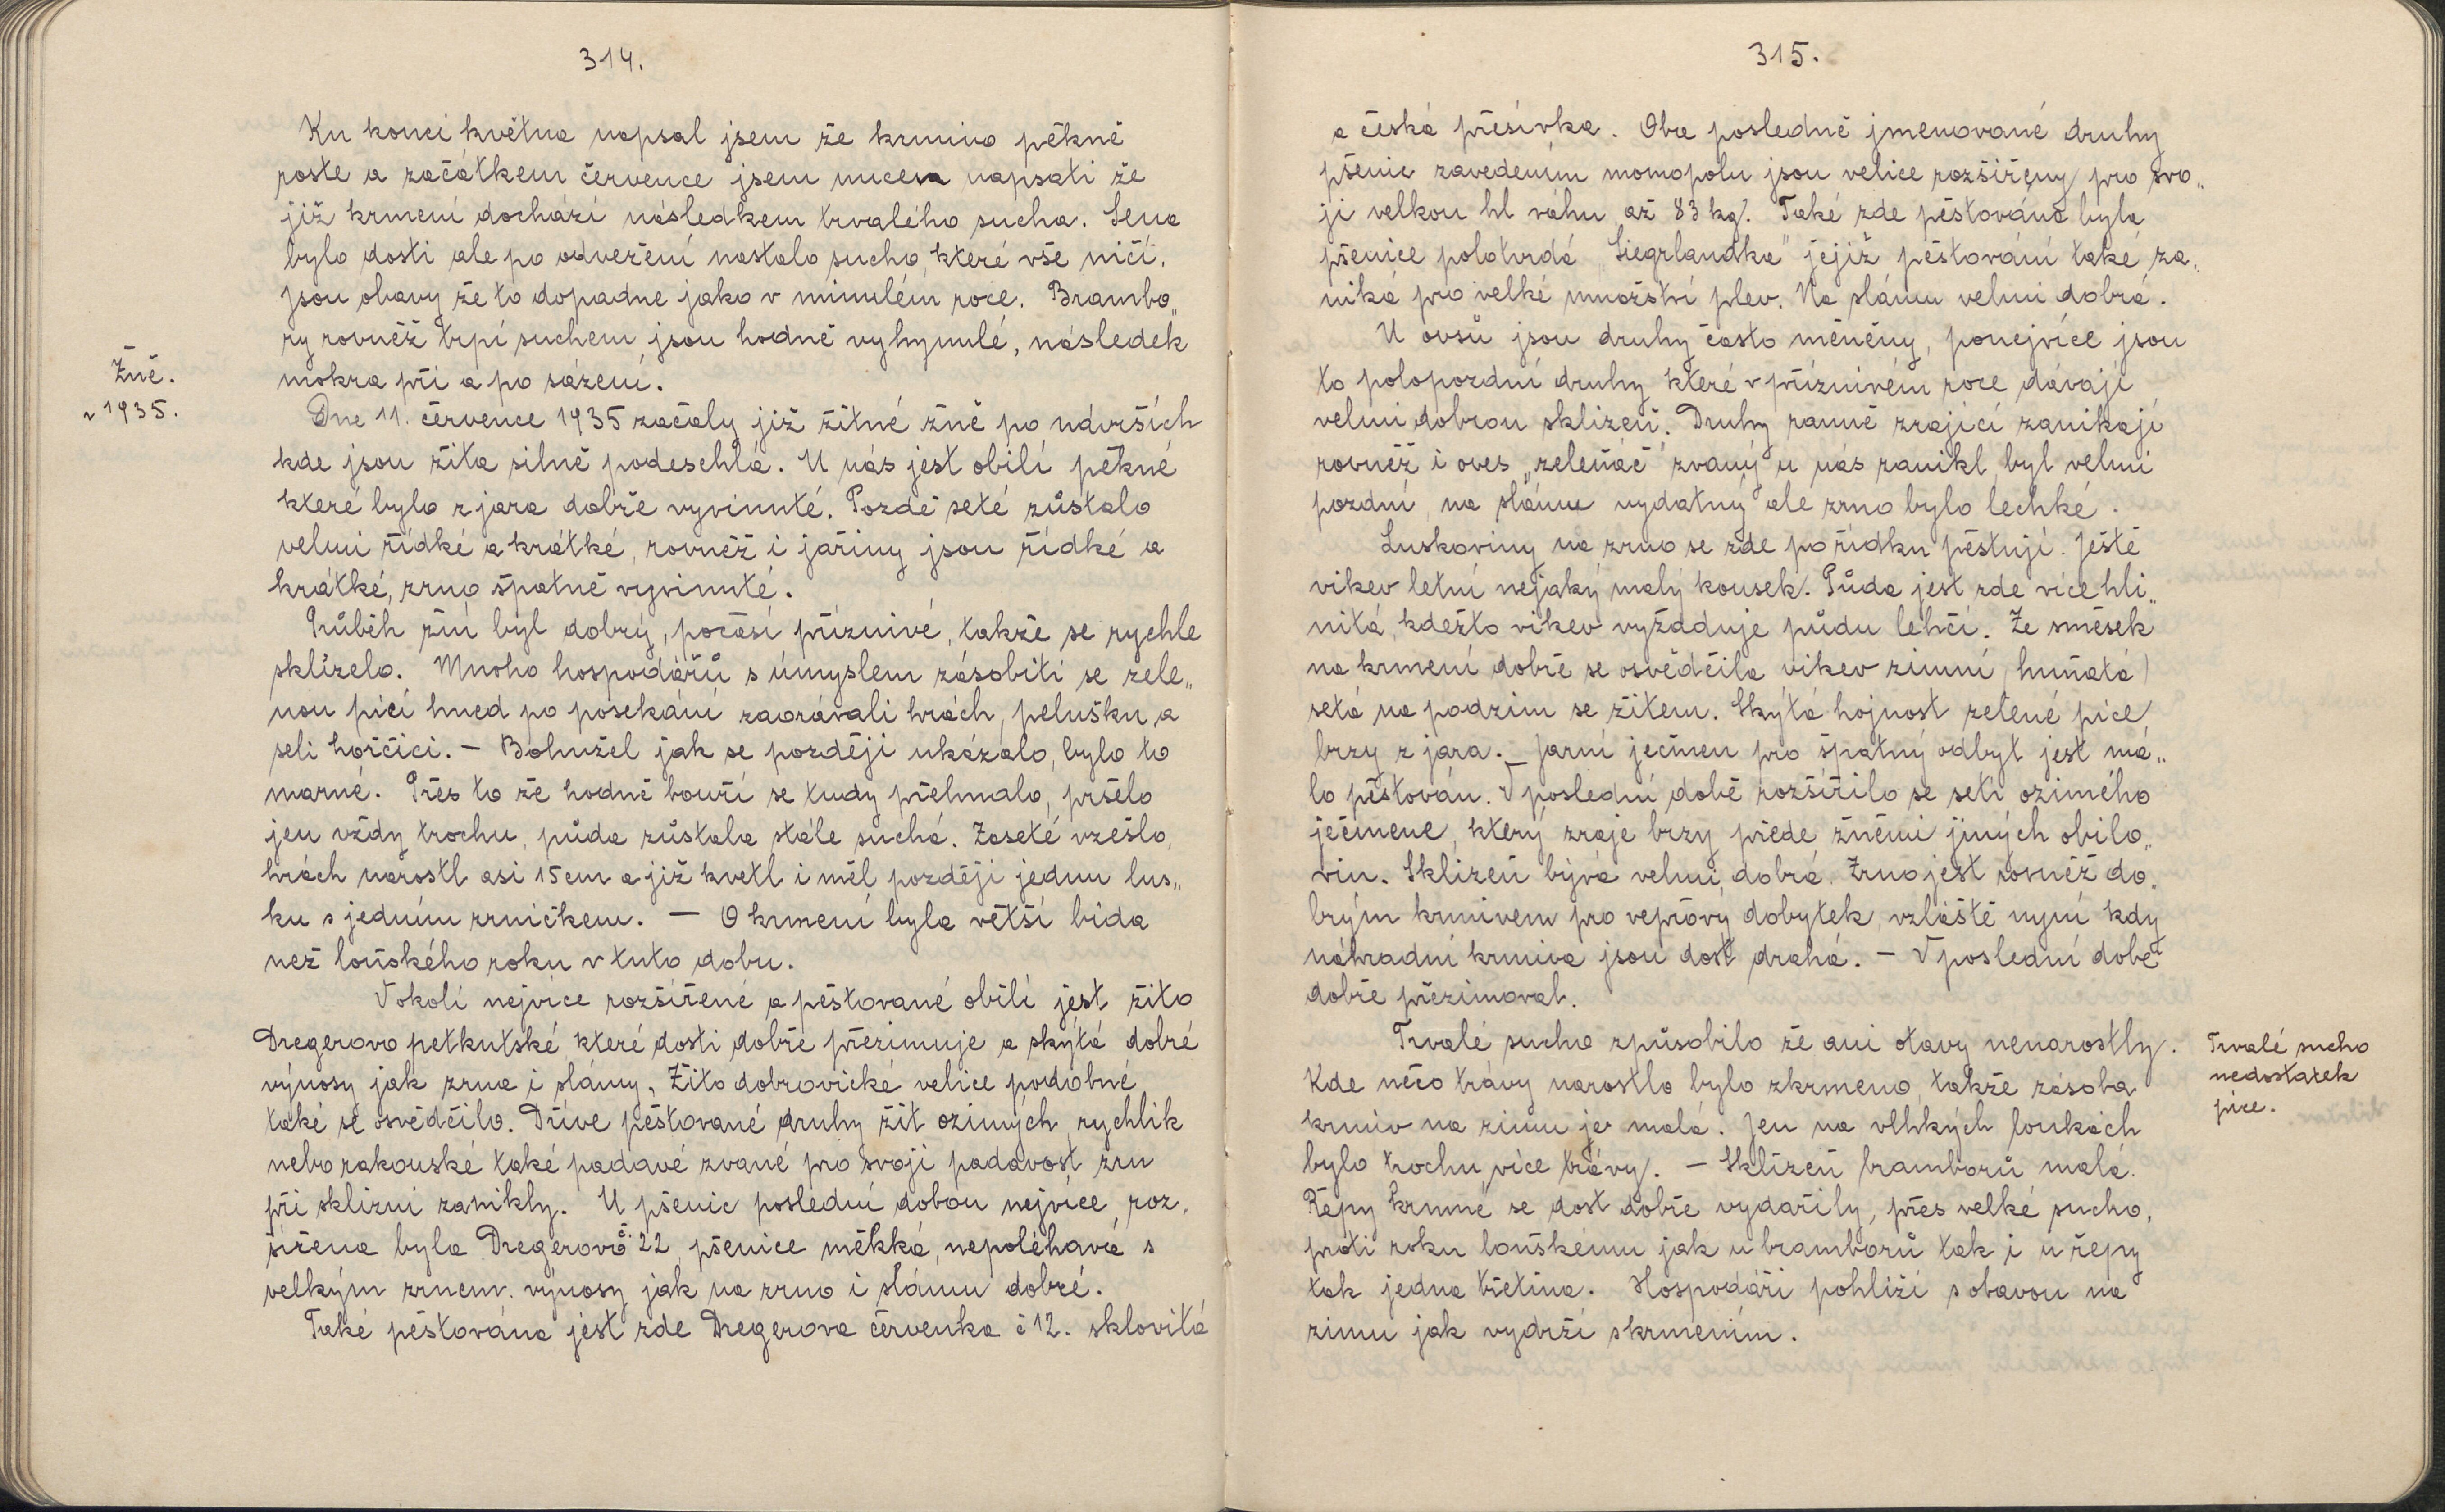 314.
Ku konci května napsal jsem že krmivo pěkně
roste a začátkem července jsem nucen napsati že
již krmení dochází následkem trvalého sucha. Sena
bylo dosti ale po odvežení nastalo sucho, které vše ničí.
Jsou obavy že to dopadne jako v minulém roce. Brambo„
ry rovněž trpí suchem jsou hodně vyhynulé, následek
mokra při a po sázení.
Žně.
r 1935.
Dne 11. července 1935 začaly již žitné žně po návrších
kde jsou žita silně podeschlá. U nás jest obilí pěkné
které bylo z jara dobře vyvinuté. Pozdě seté zůstalo
velmi řídké a krátké, rovněž i jařiny jsou řídké a
krátké, zrno špatně vyvinuté.
Průběh žní byl dobrý, počasí příznivé, takže se rychle
sklízelo. Mnoho hospodářů s úmyslem zásobiti se zele„
nou pící hned po posekání zaorávali hrách, pelušku, a
seli hořčici. – Bohužel jak se později ukázalo, bylo to
marné. Přes to že hodně bouří se tudy přehnalo, pršelo
jen vždy trochu, půda zůstala stále suchá. Zaseté vzešlo,
hrách narostl asi 15 cm a již kvetl i měl později jednu lus„
ku s jedním zrníčkem. — O krmení byla větší bída
než loňského roku v tuto dobu.
V okolí nejvíce rozšířené a pěstované obilí jest žito
Dregerovo petkutské které dosti dobře přezimuje a skýtá dobré
výnosy jak zrna i slámy. Žito dobrovické velice podobné
také se osvědčilo. Dříve pěstované druhy žit ozimých rychlik
nebo rakouské také padavé zvané pro svoji padavost zrn
při sklizni zanikly. U pšenic poslední dobou nejvíce roz„
šířena byla Dregerova č 22 pšenice měkká, nepoléhavá s
velkým zrnem. výnosy jak na zrno i slámu dobré.
Také pěstována jest zde Dregerova červenka č 12. sklovitá
315.
a česká přesívka. Oba posledně jmenované druhy
pšenic zavedením momopolu jsou velice rozšířeny pro svo„
ji velkou hl váhu až 83 kg. Také zde pěstována byla
pšenice polotvrdá „Siegrlandka" jejíž pěstování také za„
niká pro velké množství plev. Na slámu velmi dobrá.
U ovsů jsou druhy často měněny, ponejvíce jsou
to polopozdní druhy které v příznivém roce dávají
velmi dobrou sklizeň. Druhy ranně zrající zanikají
rovněž i oves „zeleňáč" zvaný u nás zanikl, byl velmi
pozdní, na slámu vydatný ale zrno bylo lechké.
Luskoviny na zrno se zde po řídku pěstují. Ještě
vikev letní nejaký malý kousek. Půda jest zde více hli„
nitá, kdežto vikev vyžaduje půdu lehčí. Ze směsek
na krmení dobře se osvědčila vikev zimní (huňatá)
setá na podzim se žitem. Skýtá hojnost zelené píce
brzy z jara. – Jarní ječmen pro špatný odbyt jest má„
lo pěstován. V poslední době rozšířilo se setí ozimého
ječmene, který zraje brzy přede žněmi jiných obilo„
vin. Sklizeň bývá velmi dobrá. Zrno jest rovněž do„
brým krmivem pro vepřový dobytek, vzláště nyní kdy
náhradní krmiva jsou dost drahá. – V poslední době
dobře přezimoval.
Trvalé sucho způsobilo že ani otavy nenarostly.
Trvalé sucho
nedostatek
píce.
Kde něco trávy narostlo bylo zkrmeno, takže zásoba
krmiv na zimu je malá. Jen na vlhkých loukách
bylo trochu více trávy. – Sklizeň bramborů malá.
Řepy krmné se dost dobře vydařily, přes velké sucho,
proti roku loňskému jak u bramborů tak i u řepy
tak jedna třetina. Hospodáři pohlíží s obavou na
zimu jak vydrží s krmením.